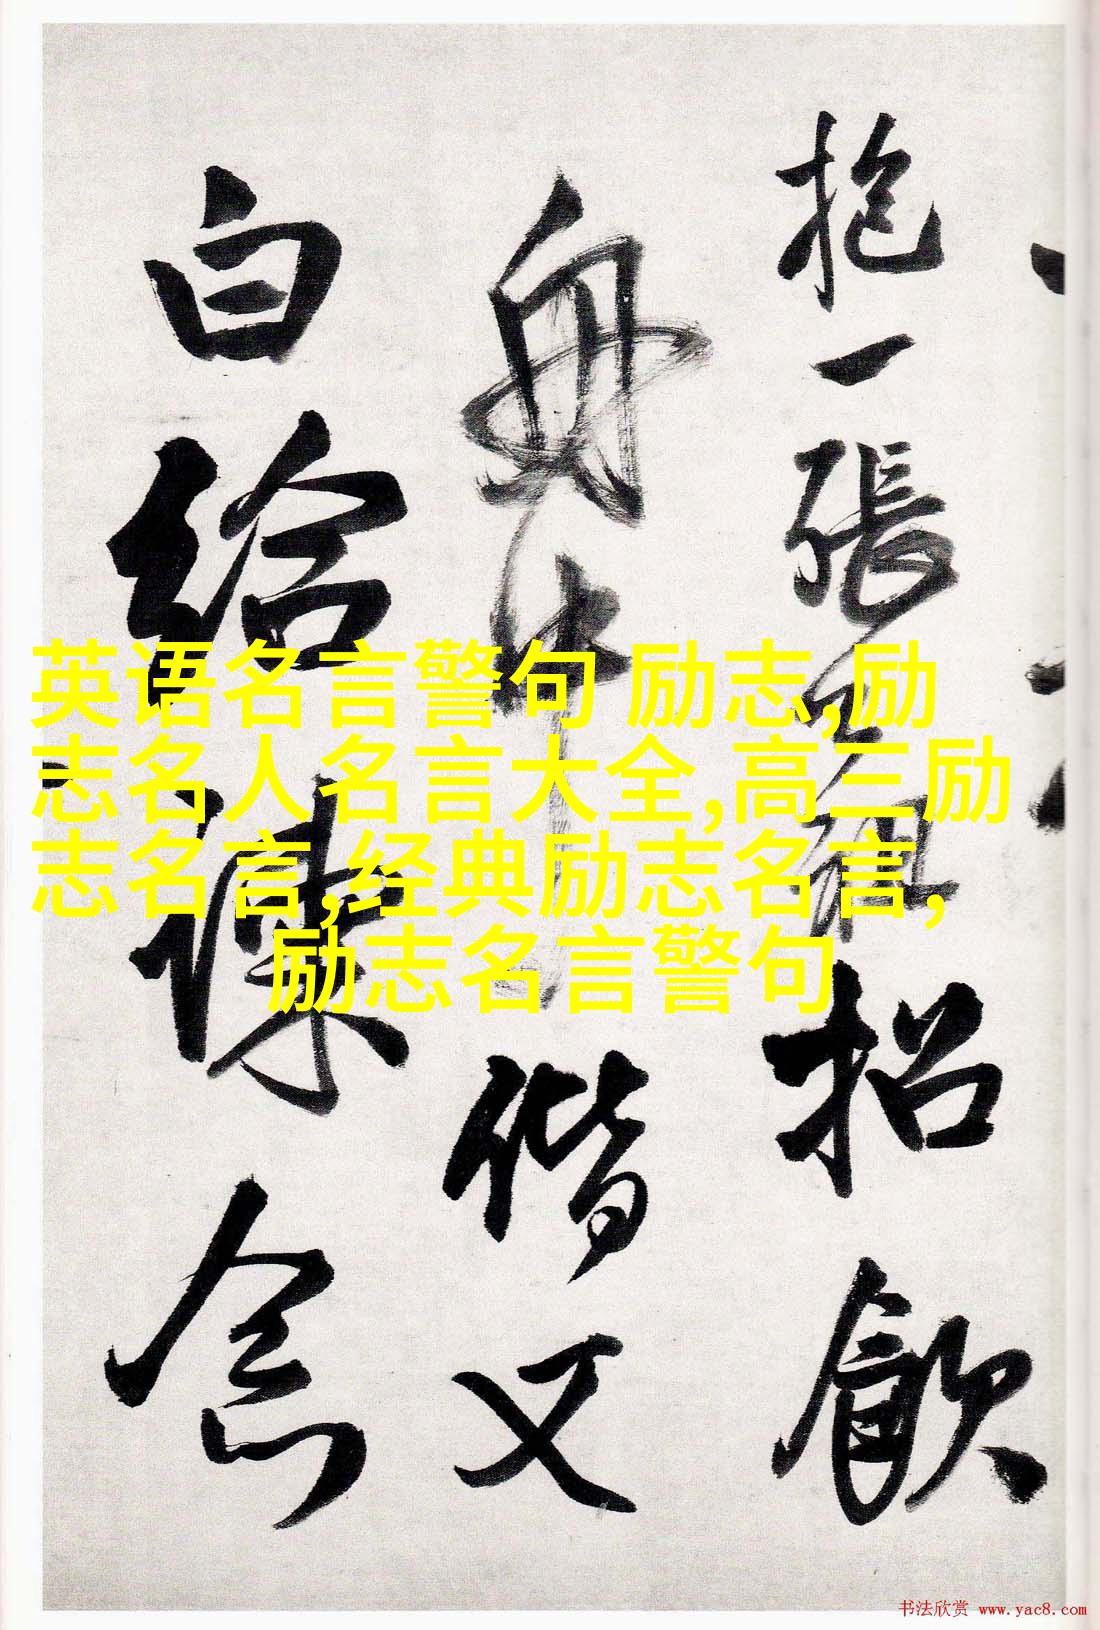 抱一張招飲
舟偕又
白給諫念
英语名言警句 励志,励
志名人名言大全,高三励
志名言,经典励志名言,
励志名言警句
书法欣赏 www.yac8.com